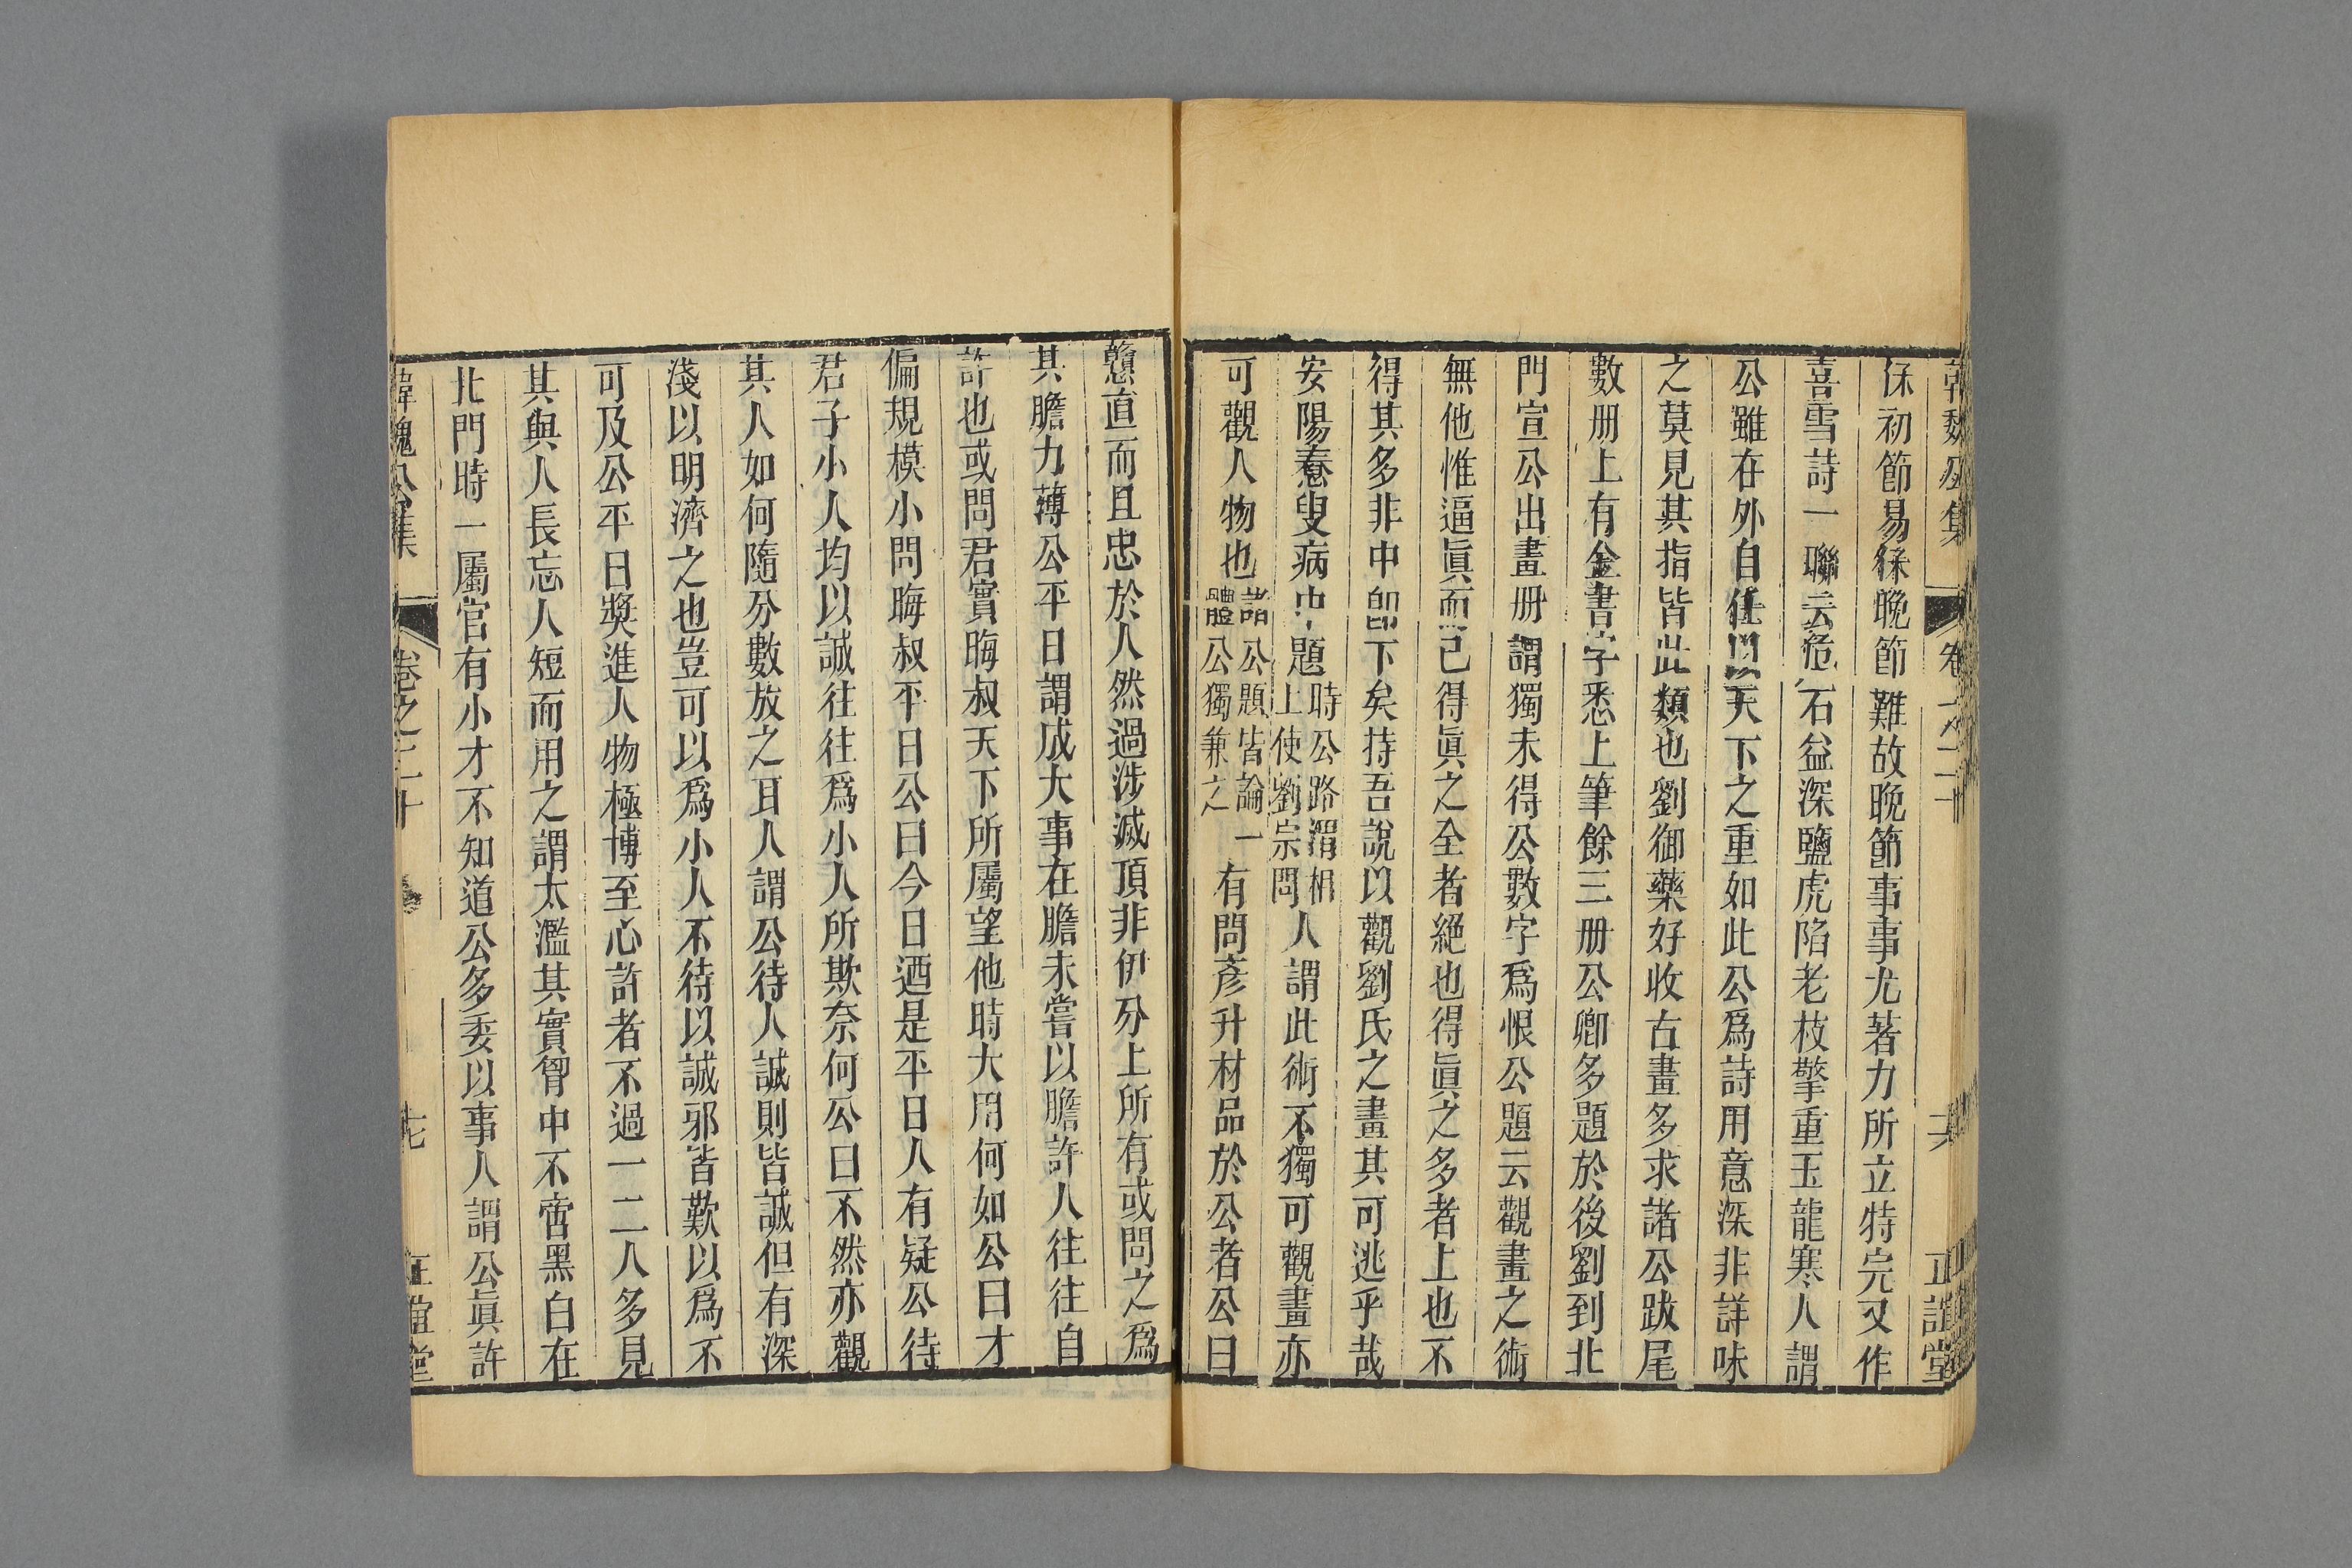 韓魏公集 卷之二十 六 正誼堂
保初節易保晚節難故晚節事事尤著力所立特完又作
喜雪詩一聯云危石益深鹽虎陷老枝擎重玉龍寒人謂
公雖在外自任以天下之重如此公爲詩用意深非詳味
之莫見其指皆此類也劉御藥好收古畫多求諸公跋尾
數册上有金書字悉上筆餘三册公卿多題於後劉到北
門宣公出畫册謂獨未得公數字爲恨公題云觀畫之術
無他惟逼眞而已得眞之全者絕也得眞之多者上也不
得其多非中卽下矣持吾說以觀劉氏之畫其可逃乎哉
安陽戇叟病中題時公路渭相上使劉宗問人謂此術不獨可觀畫亦
可觀人物也諸公題皆論一體公獨兼之有問彥升材品於公者公曰
戇直而且忠於人然過涉滅頂非伊分上所有或問之爲
其膽力薄公平日謂成大事在膽未嘗以膽許人往往自
許也或問君實晦叔天下所屬望他時大用何如公曰才
偏規模小問晦叔平日公曰今日迺是平日人有疑公待
君子小人均以誠往往爲小人所欺奈何公曰不然亦觀
其人如何隨分數放之耳人謂公待人誠則皆誠但有深
淺以明濟之也豈可以爲小人不待以誠邪皆歎以爲不
可及公平日獎進人物極博至心許者不過一二人多見
其與人長忘人短而用之謂太濫其實胷中不啻黑白在
北門時一屬官有小才不知道公多委以事人謂公眞許
韓魏公集 卷之二十 七 正誼堂